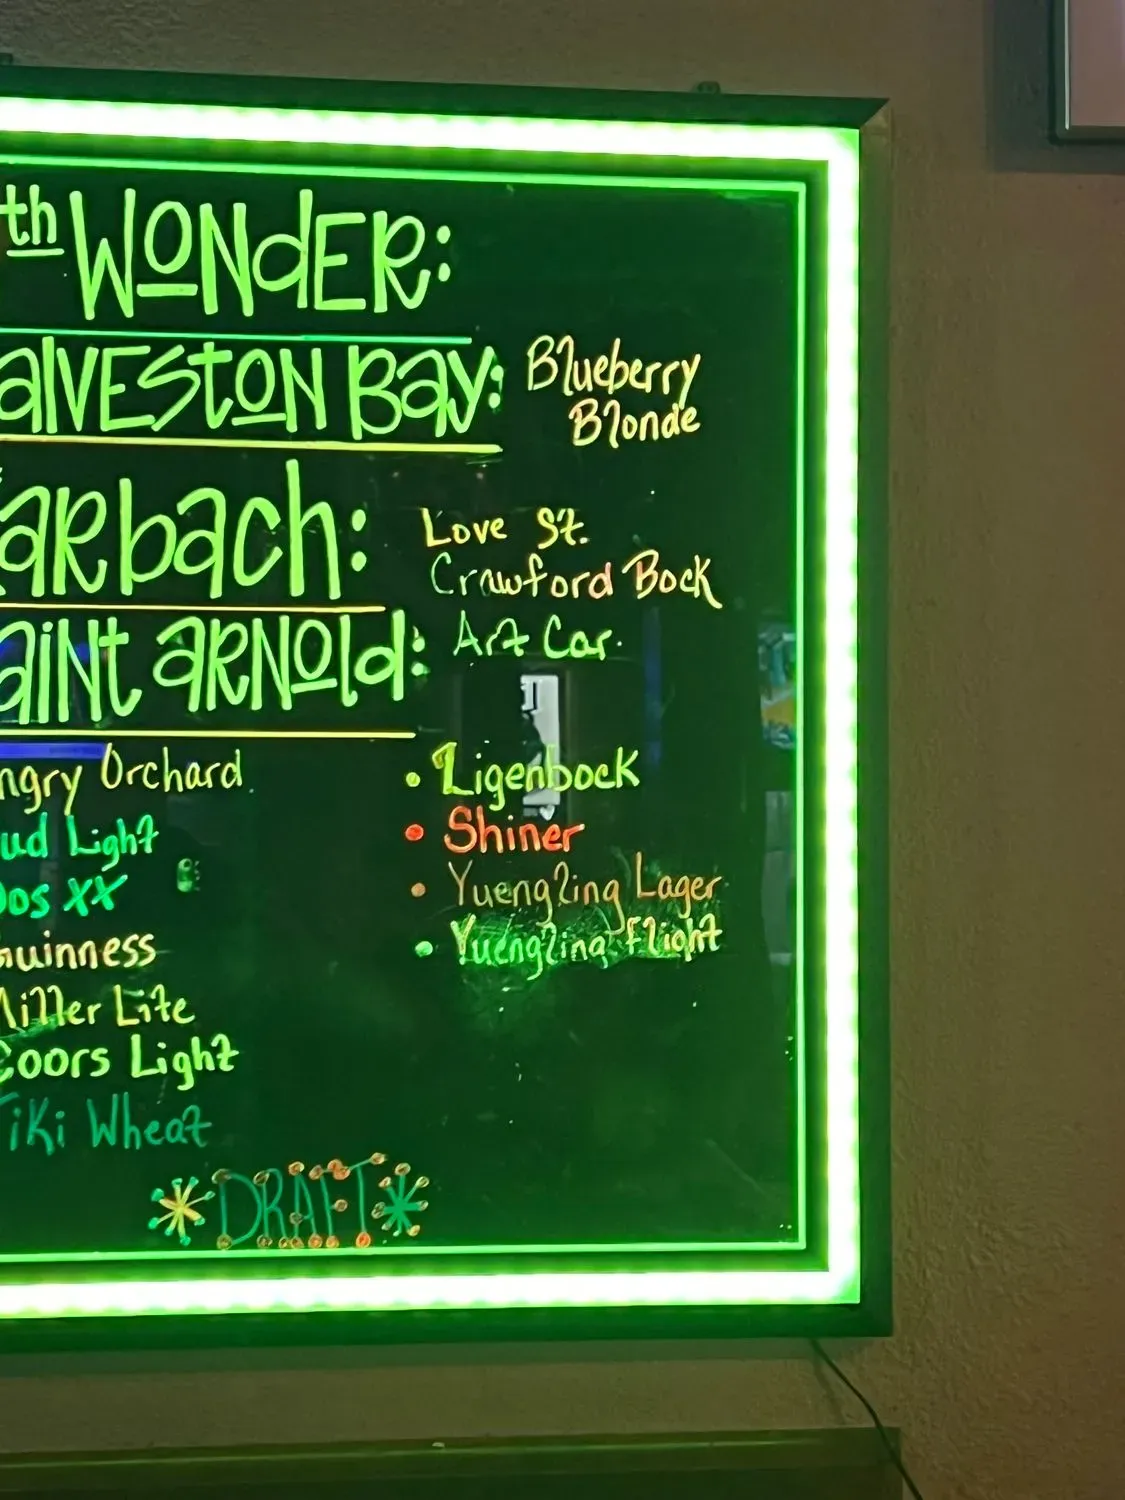 th WONDER:
alVESTON BAY:
Blueberry
Blonde
arbach:
Love St.
Crawford Bock
aiNt ARNOld:
Art Car.
ngry Orchard
ud Light
Dos XX
Guinness
Miller Lite
Coors Light
Tiki Wheat
• Zigenbock
• Shiner
• Yuengling Lager
• Yuengling flight
*DRAFT*